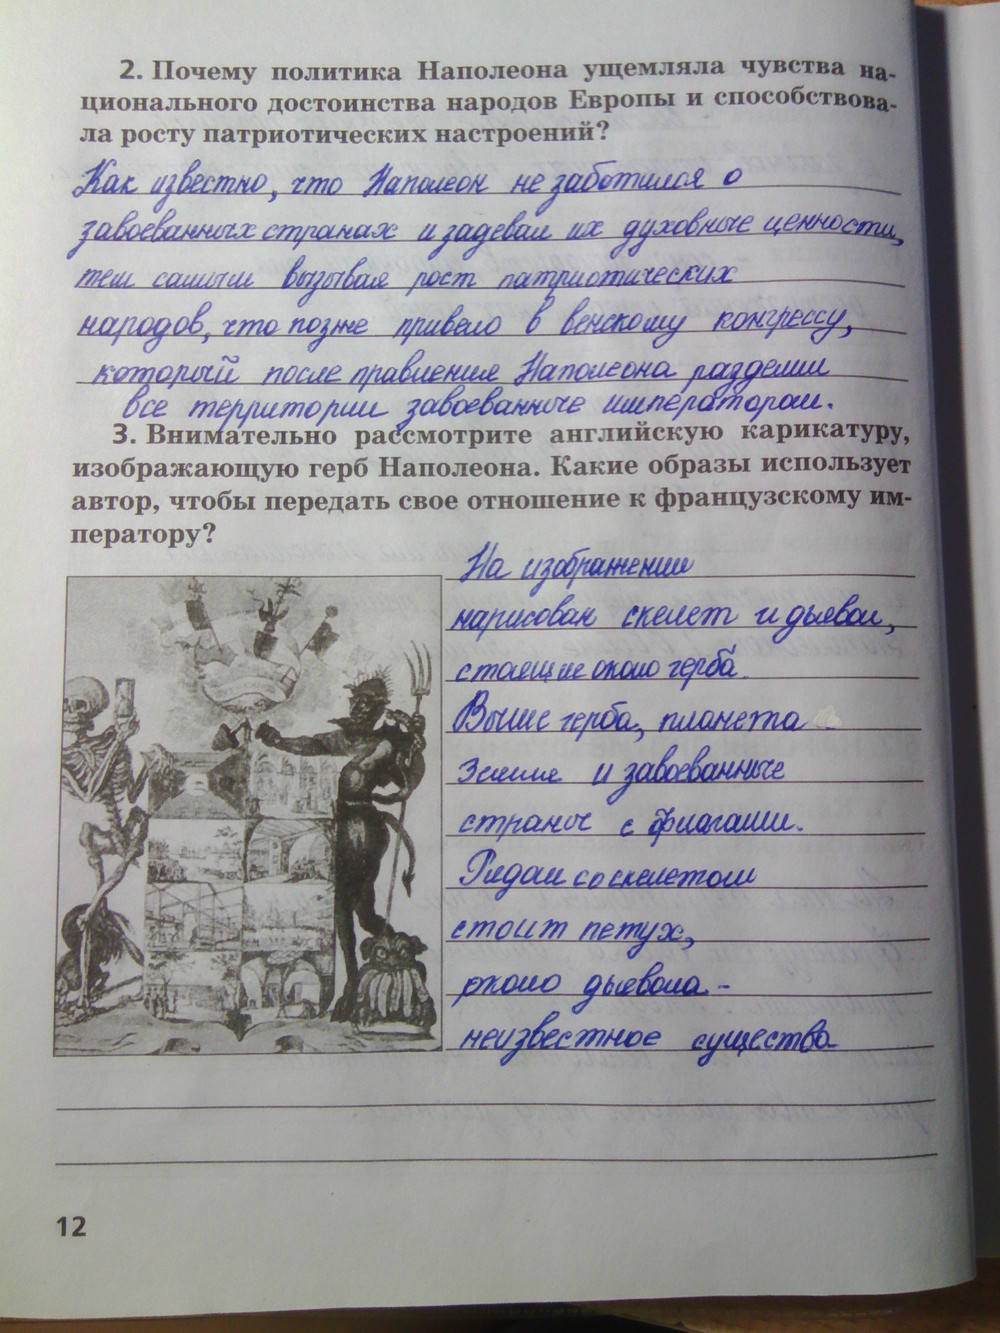 2. Почему политика Наполеона ущемляла чувства на-
ционального достоинства народов Европы и способствова-
ла росту патриотических настроений?
Как известно, что Наполеон не заботился о
завоеванных странах и задевал их духовные ценности,
тем самым вызывая рост патриотических
народов, что позже привело в венскому конгрессу,
который после правления Наполеона разделил
все территории завоеванные императором.
3. Внимательно рассмотрите английскую карикатуру,
изображающую герб Наполеона. Какие образы использует
автор, чтобы передать свое отношение к французскому им-
ператору?
На изображении
нарисован скелет и дьявол,
стоящие около герба.
Выше герба, планета
Земля и завоеванные
страны с флагами.
Рядом со скелетом
стоит петух,
около дьявола -
неизвестное существо
12